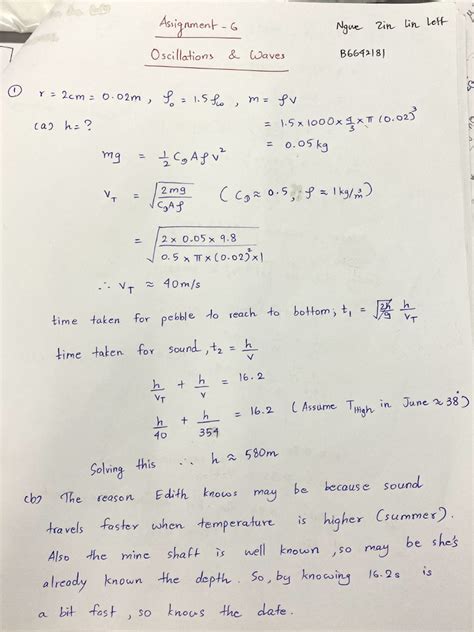 Assignment - 6
Oscillations & Waves
Ngwe Zin Lin Lett
B6642181
① r = 2cm = 0.02m , ρₒ = 1.5 ρω , m = ρV
= 1.5 × 1000 × 4/3 × π (0.02)³
= 0.05 kg
(a) h = ?
mg = 1/2 C₉ A ρ v²
v_T = √(2mg / C₉Aρ) ( C₉ ≈ 0.5 , ρ ≈ 1 kg/m³ )
= √(2 × 0.05 × 9.8 / 0.5 × π × (0.02)² × 1)
∴ v_T ≈ 40 m/s
time taken for pebble to reach to bottom, t₁ = h/v_T
time taken for sound, t₂ = h/v
h/v_T + h/v = 16.2
h/40 + h/354 = 16.2 ( Assume T_High in June ≈ 38° )
Solving this ∴ h ≈ 580m
(b) The reason Edith knows may be because sound
travels faster when temperature is higher (summer).
Also the mine shaft is well known, so may be she's
already known the depth. So, by knowing 16.2s is
a bit fast, so knows the date.